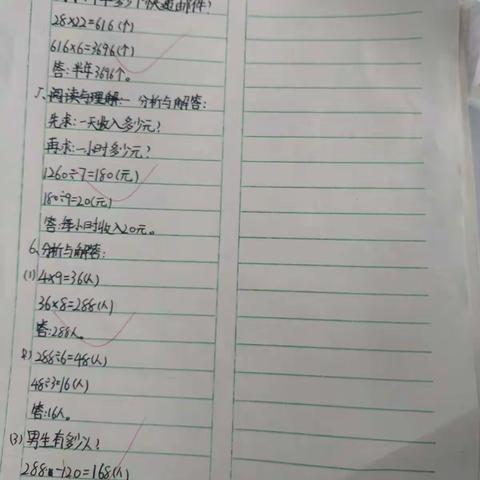 多少个快递邮件?
28×22=616(个)
616×6=3696(个)
答:半年3696个。
5、阅读与理解: 分析与解答:
先求:一天收入多少元?
再求:一小时多少元?
1260÷7=180(元)
180÷9=20(元)
答:每小时收入20元。
6、分析与解答:
(1) 4×9=36(人)
36×8=288(人)
答:288人。
2) 288÷6=48(人)
48÷3=16(人)
答:16人。
(3) 男生有多少人?
288-120=168(人)